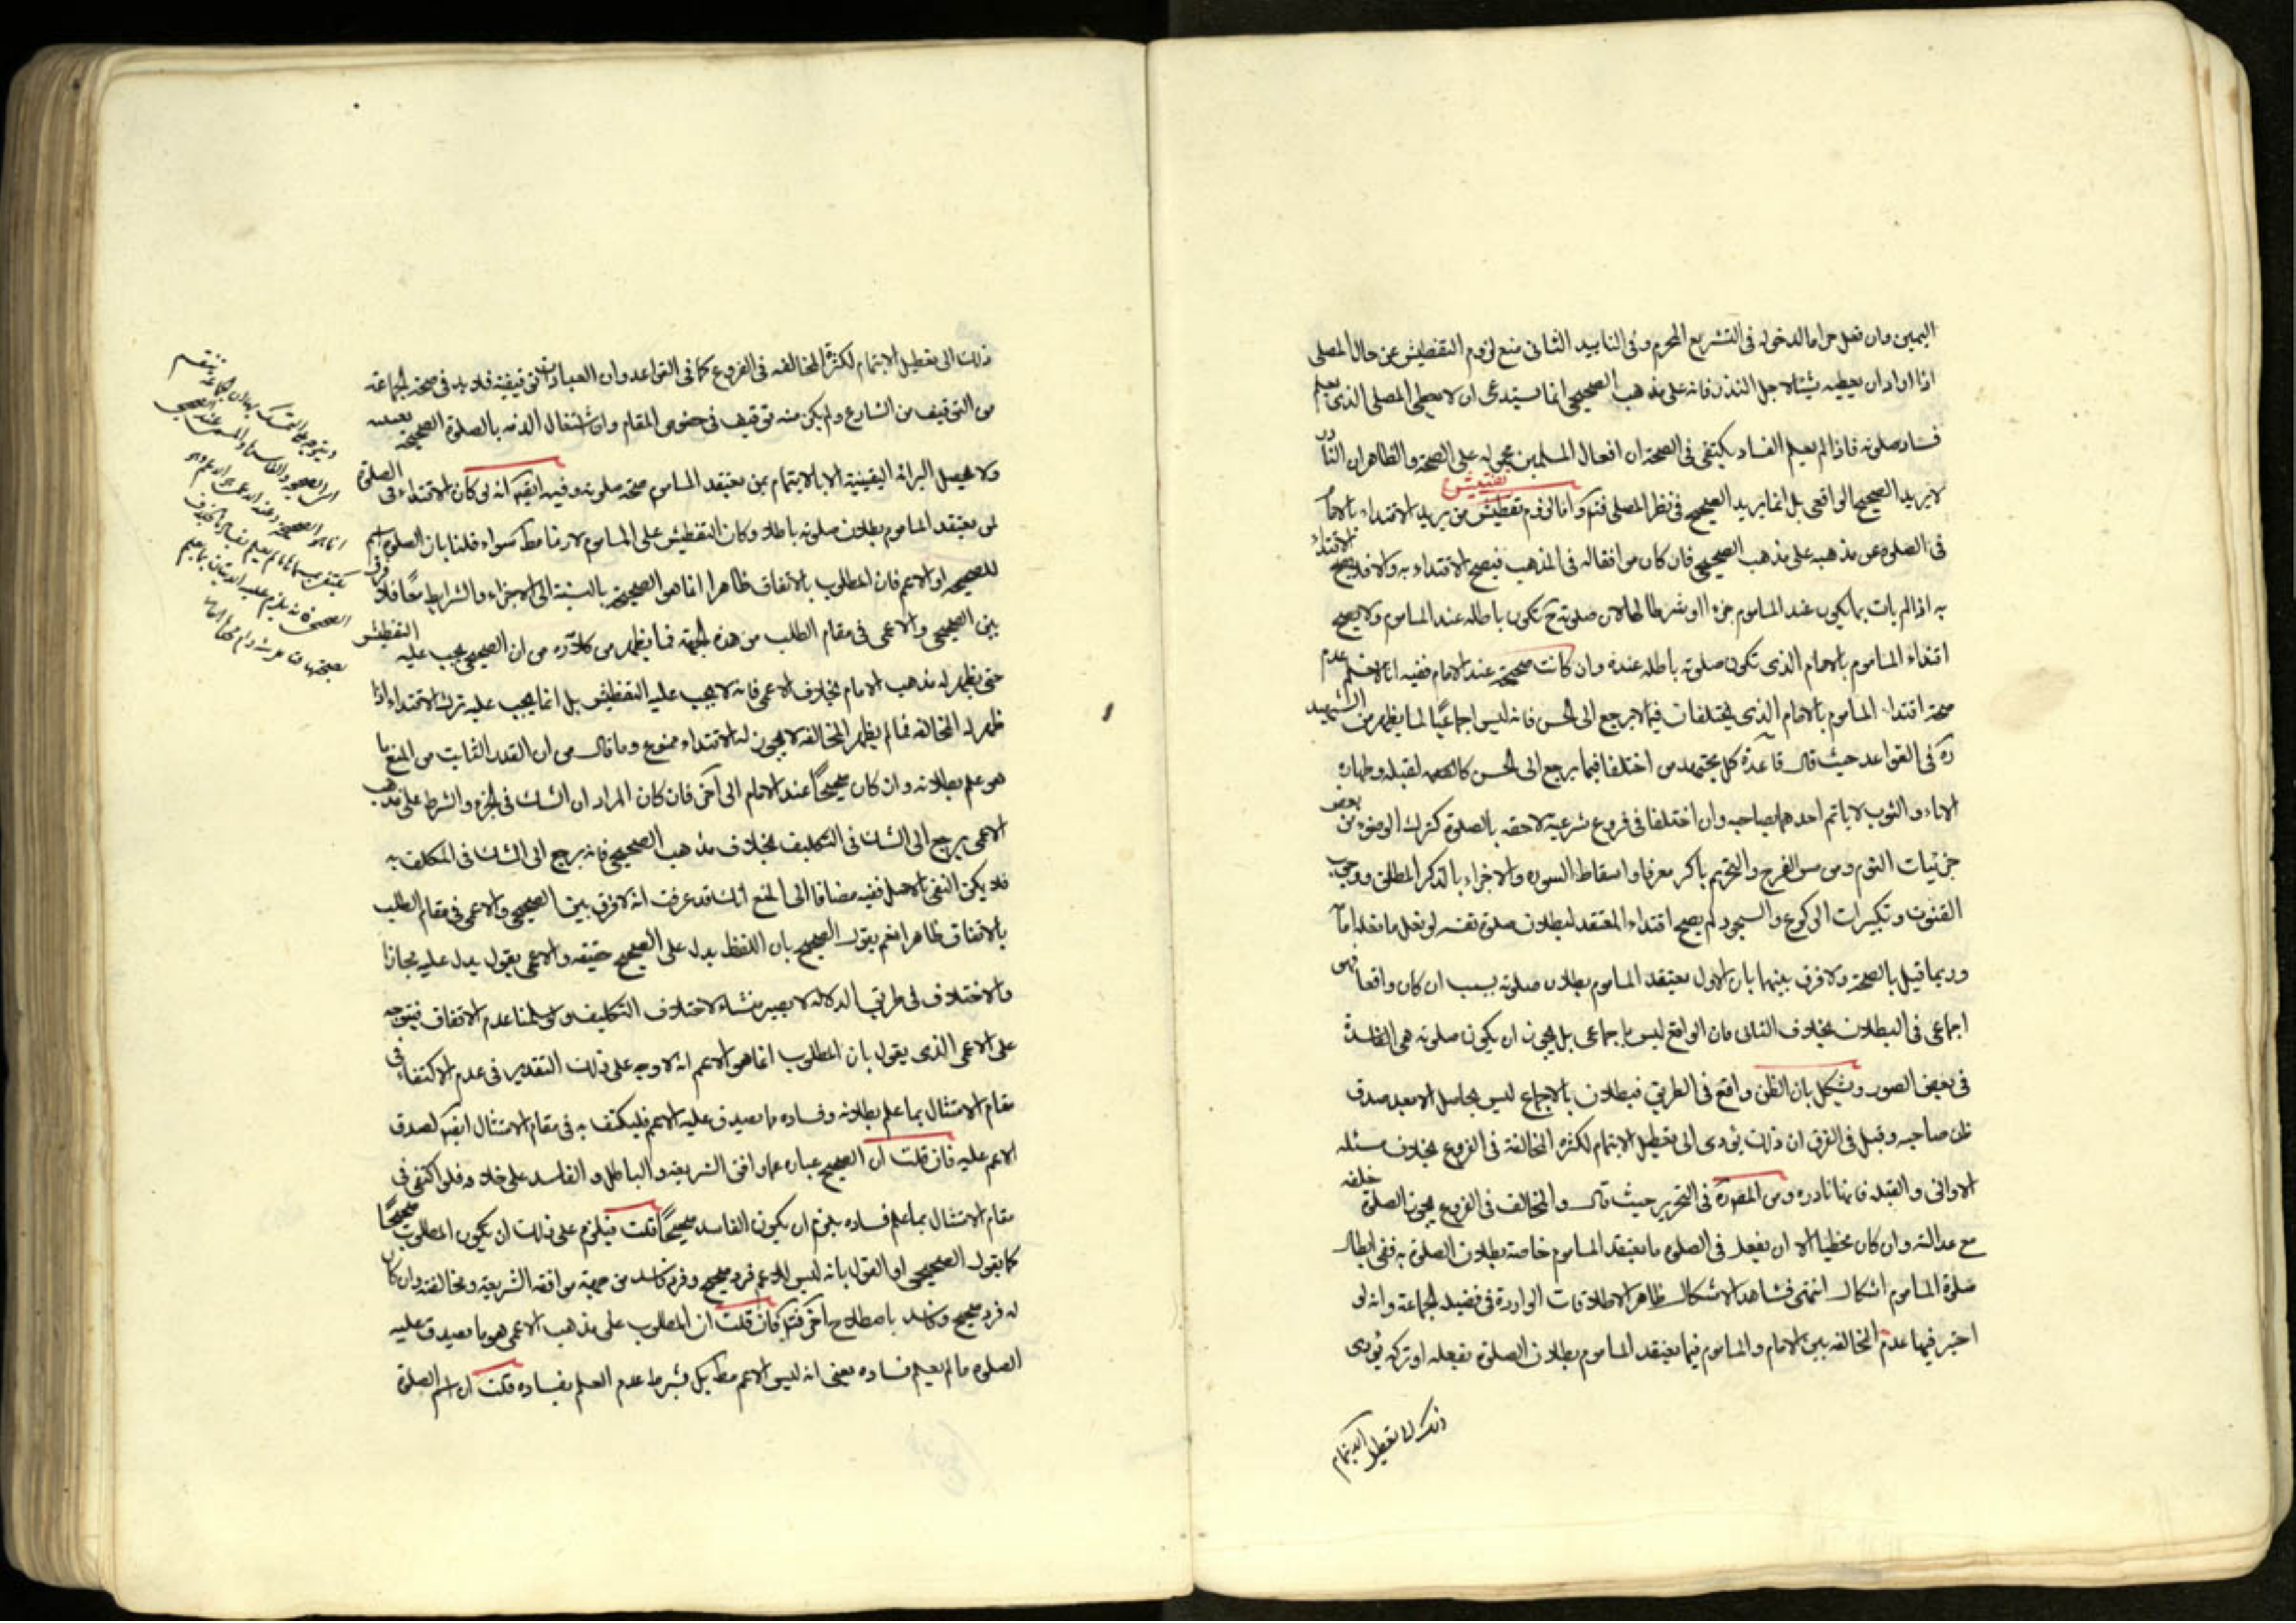 اليمين وان فعل حراما لدخوله فى التشريع المحرم وفى التاييد الثانى منع لزوم التفطيش عن حال المصلى
اذا اراد ان يعطيه شيئا لاجل النذر فانه على مذهب الصحيحى انما يستدعى ان لا يعطى المصلى الذى يعلم
فساد صلوته فاذا لم يعلم الفساد يكتفى فى الصحة ان افعال المسلمين محموله على الصحة والظاهر ان الناذر
لا يريد الصحيح الواقعى بل انما يريد الصحيح فى نظر المصلى فتدبر واما لزوم تفطيش من يريد الاقتداء بالامام
تفتيش
فى الصلوة عن مذهبه على مذهب الصحيحى فان كان موافقا له فى المذهب فيصح الاقتداء به والا فلا يصح الاقتداء
به اذا لم يات بما يكون عند الماموم جزء او شرطا لها لان صلوته ح تكون باطله عند الماموم ولا يصح
اقتداء الماموم بالامام الذى تكون صلوته باطله عنده وان كانت صحيحة عند الامام ففيه انا لا نسلم عدم
صحة اقتداء الماموم بالامام الذى يختلفان فيما لا يرجع الى الحس فانه ليس اجماعيا لما يظهر من الشهيد
ره فى القواعد حيث قال قاعدة كل مجتهدين اختلفا فيما يرجع الى الحس كالجهة لقبله وطهارة
الاناء والثوب لا ياتم احدهما بصاحبه وان اختلفا فى فروع شرعية لاحقه بالصلوة كترك الوضوء من بعض
جزئيات النوم ومن مس الفرج والتحريم باكبر معرفا واسقاط السورة والاجزاء بالذكر المطلق ووجوب
القنوت وتكبيرات الركوع والسجود لم يصح اقتداء المعتقد لبطلان صلوة نفسه لو فعل ما فعله امامه
وربما قيل بالصحة ولا فرق بينهما بان الاول يعتقد الماموم بطلان صلوته بسبب ان كان واقعا فهو
اجماعى فى البطلان بخلاف الثانى فان الواقع ليس باجماعى بل يجوز ان يكون صلوته هى الفاسدة
فى بعض الصور ويشكل بان الظن واقع فى الطريق فبطلان بالاجماع ليس بحاصل الا بعد صدق
ظن صاحبه وقيل فى الفرق ان ذلك يؤدى الى تعطيل الايتمام لكثرة المخالفة فى الفروع بخلاف مسئله
الاوانى والقبله فانها نادره ومن الفصول فى التحرير حيث قال والمخالف فى الفروع يجوز الصلوة خلفه
مع عدالته وان كان مخطيا الا ان يفعل فى الصلوة ما يعتقد الماموم خاصة بطلان الصلوة به ففى ابطال
صلوة الماموم اشكال انتهى فشاهد الاشكال ظاهر الاطلاقات الواردة فى فضيلة الجماعة وانه لو
اعتبر فيها عدم المخالفه بين الامام والماموم فيما يعتقد الماموم بطلان الصلوة بفعله او تركه يؤدى
ذلك الى تعطيل الايتمام
ذلك الى تعطيل الايتمام لكثرة المخالفه فى الفروع كما فى القواعد وان العبادات توقيفية فلا بد فى صحة الجماعة
من التوقيف من الشارع ولم يكن منه توقيف فى خصوص المقام وان اشتغال الذمه بالصلوة الصحيحة يقينى
ولا يحصل البرائة اليقينية الا بالايتمام بمن يعتقد الماموم صحة صلوته وفيه ايضا انه لو كان الاقتداء فى الصلوة
لمن يعتقد الماموم بطلان صلوته باطلا وكان التفطيش على الماموم لازما مط سواء قلنا بان الصلوة اسم
للصحيحة او الاعم فان المطلوب بالاتفاق ظاهرا انما هو الصحيحة بالنسبة الى الاجزاء والشرايط معا فلا فرق
بين الصحيحى والاعمى فى مقام الطلب من هذه الجهة فما يظهر من كلامه ره من ان الصحيحى يجب عليه التفطيش
حتى يظهر له مذهب الامام بخلاف الاعمى فانه لا يجب عليه التفطيش بل انما يجب عليه ترك الاقتداء اذا
ظهر له المخالفه فما لم يظهر المخالفة لا يجوز له الاقتداء ممنوع وما قال من ان القدر الثابت من المنع ما
هو علم بطلانه وان كان صحيحا عند الامام الى آخره فان كان المراد ان الشك فى الجزء والشرط على مذهب
الاعمى يرجع الى الشك فى التكليف بخلاف مذهب الصحيحى فانه يرجع الى الشك فى المكلف به
فلا يمكن النفى بالاصل ففيه مضافا الى المنع انك قد عرفت انه لا فرق بين الصحيحى والاعمى فى مقام الطلب
بالاتفاق ظاهرا نعم يقول الصحيحى بان اللفظ يدل على الصحيح حقيقه والاعمى يقول يدل عليه مجازا
والاختلاف فى طريق الدلاله لا يصير منشاء لاختلاف التكليف ولو سلمنا عدم الاتفاق فيتوجه
على الاعمى الذى يقول بان المطلوب انما هو الاعم انه لا وجه على ذلك التقدير فى عدم الاكتفاء فى
مقام الامتثال بما علم بطلانه وفساده مما يصدق عليه الاعم فليكتف به فى مقام الامتثال ايضا لصدق
الاعم عليه فان قلت ان الصحيح عبارة عما وافق الشريعة والباطل والفاسد على خلافه فلو اكتفى فى
مقام الامتثال بما علم فساده يلزم ان يكون الفاسد صحيحا قلت فيلزم على ذلك ان يكون المطلوب صحيحا
كما يقول الصحيحى او القول بانه ليس للاعم فرد صحيح وفرد فاسد من جهة موافقة الشريعة ومخالفته وان كان
له فرد صحيح وفاسد باصطلاح آخر فتدبر فان قلت ان المطلوب على مذهب الاعمى هو ما يصدق عليه
الصلوة ما لم يعلم فساده يعنى انه ليس الاعم مط بل بشرط عدم العلم بفساده قلت ان اسم الصلوة